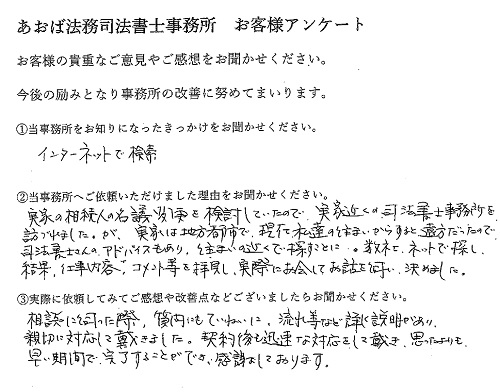 あおば法務司法書士事務所　お客様アンケート
お客様の貴重なご意見やご感想をお聞かせください。
今後の励みとなり事務所の改善に努めてまいります。
①当事務所をお知りになったきっかけをお聞かせください。
インターネットで検索
②当事務所へご依頼いただけました理由をお聞かせください。
実家の相続人の名議変更を検討していたので、実家近くの司法書士事務所を
訪づれました。が、実家は地方都市で、現在私達の住まいからすると遠方だったので
司法書士さんのアドバイスもあり、住まいの近くで探すことに。数社をネットで探し、
結果、仕事内容、コメント等を拝見し、実際にお会してお話を伺い、決めました。
③実際に依頼してみてご感想や改善点などございましたらお聞かせください。
相談に伺った際、質問にもていねいに、流れ等など詳く説明があり、
親切に対応して戴きました。契約後も迅速な対応をして戴き、思ったよりも
早い期間で完了することができ、感謝しております。